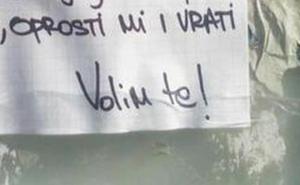 ,OPROSTI MI I VRATI
Volim te!